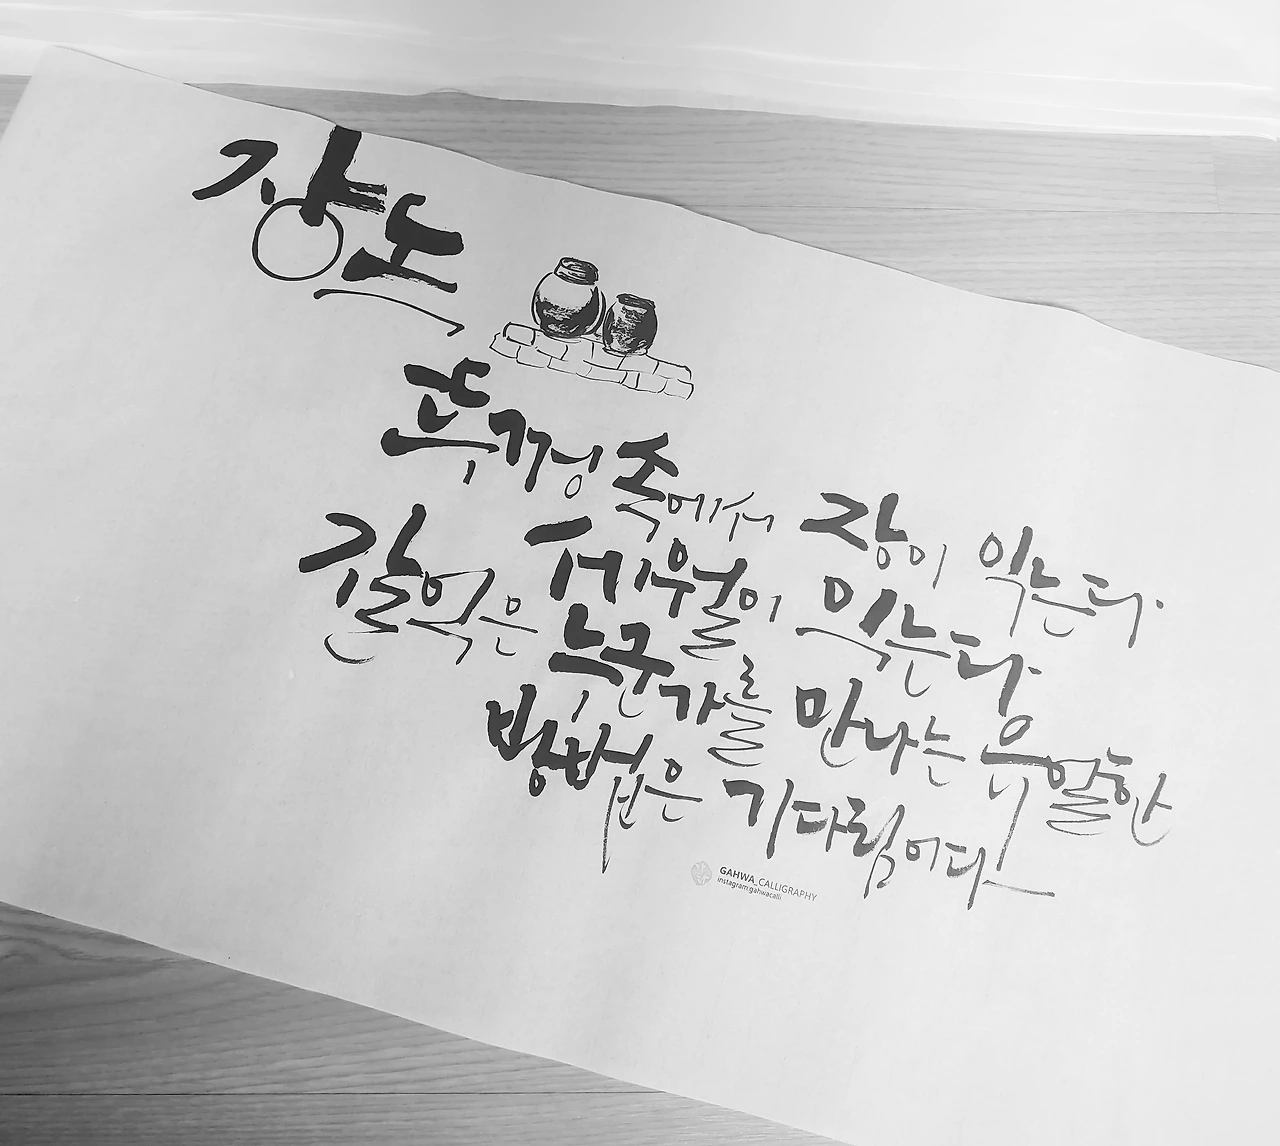 장독
뚜껑 속에서 장이 익는다.
세월이 익는다.
잘 익은 누군가를 만나는 유일한
방법은 기다림이다
GAHWA_CALLIGRAPHY
instagram:gahwacalli